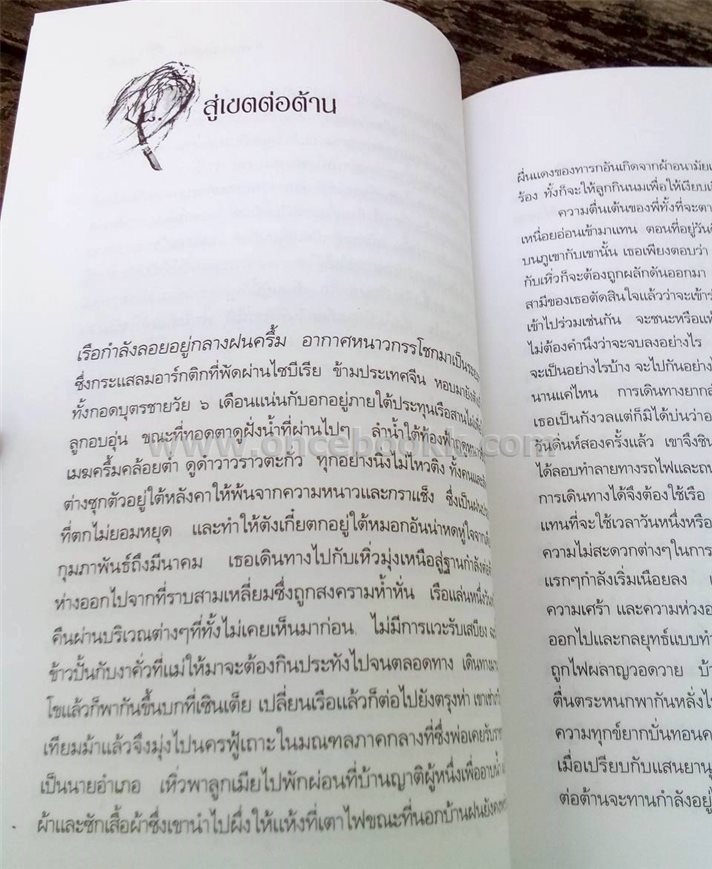 ๘.
สู่เขตต่อต้าน
เรือกำลังลอยอยู่กลางฝนครึ้ม อากาศหนาวกรรโชกมาเป็น
ซึ่งกระแสลมอาร์กติกที่พัดผ่านไซบีเรีย ข้ามประเทศจีน หอบมา
ทั้งกอดบุตรชายวัย ๖ เดือนแน่นกับอกอยู่ภายใต้ประทุนเรือสาน
ลูกอบอุ่น ขณะที่ทอดตาดูฝั่งน้ำที่ผ่านไปๆ ลำน้ำใต้ท้องฟ้า
เมฆครึ้มคล้อยต่ำ ดูดำวาวราวตะกั่ว ทุกอย่างนิ่งไม่ไหวติง ทั้งคน
ต่างซุกตัวอยู่ใต้หลังคาให้พ้นจากความหนาวและกราแช็ง ซึ่งเป็น
ที่ตกไม่ยอมหยุด และทำให้ตังเกี๋ยตกอยู่ใต้หมอกอันน่าหดหู่ใจ
กุมภาพันธ์ถึงมีนาคม เธอเดินทางไปกับเหิ่วมุ่งเหนือสู่ฐานกำลัง
ห่างออกไปจากที่ราบสามเหลี่ยมซึ่งถูกสงครามห้ำหั่น เรือแล่นหนึ่ง
คืนผ่านบริเวณต่างๆที่ทั้งไม่เคยเห็นมาก่อน ไม่มีการแวะรับเสบียง
ข้าวปั้นกับงาคั่วที่แม่ให้มาจะต้องกินประทังไปจนตลอดทาง เดินทาง
โชแล้วก็พากันขึ้นบกที่เซินเต็ย เปลี่ยนเรือแล้วก็ต่อไปยังตรุงห่า เขา
เทียมม้าแล้วจึงมุ่งไปนครฟู้เถาะในมณฑลภาคกลางที่ซึ่งพ่อเคยรับ
เป็นนายอำเภอ เหิ่วพาลูกเมียไปพักผ่อนที่บ้านญาติผู้หนึ่งเพื่ออาบน้ำ
ผ้าและซักเสื้อผ้าซึ่งเขานำไปผึ่งให้แห้งที่เตาไฟขณะที่นอกบ้านฝนยัง
ผื่นแดงของทารกอันเกิดจากผ้าอนามัย
ร้อง ทั้งก็จะให้ลูกกินนมเพื่อให้เงียบ
ความตื่นเต้นของพี่ทั้งที่จะ
เหนื่อยอ่อนเข้ามาแทน ตอนที่อยู่
บนภูเขากับเขานั้น เธอเพียงตอบว่า
กับเหิ่วก็จะต้องถูกผลักดันออกมา
สามีของเธอตัดสินใจแล้วว่าจะเข้า
เข้าไปร่วมเช่นกัน จะชนะหรือ
ไม่ต้องคำนึงว่าจะจบลงอย่างไร
จะเป็นอย่างไรบ้าง จะไปกันอย่าง
นานแค่ไหน การเดินทางยาก
เธอเป็นกังวลแต่ก็มิได้บ่นว่า
รินดันห์สองครั้งแล้ว เขาจึง
ได้ลอบทำลายทางรถไฟและ
การเดินทางได้จึงต้องใช้เรือ
แทนที่จะใช้เวลาวันหนึ่งหรือ
ความไม่สะดวกต่างๆในการ
แรกๆกำลังเริ่มเนือยลง
ความเศร้า และความห่วง
ออกไปและกลยุทธ์แบบ
ถูกไฟผลาญวอดวาย
ตื่นตระหนกพากันหลั่ง
ความทุกข์ยากบั่นทอน
เมื่อเปรียบกับแสนยานุ
ต่อต้านจะทานกำลังอยู่
www.oncebook